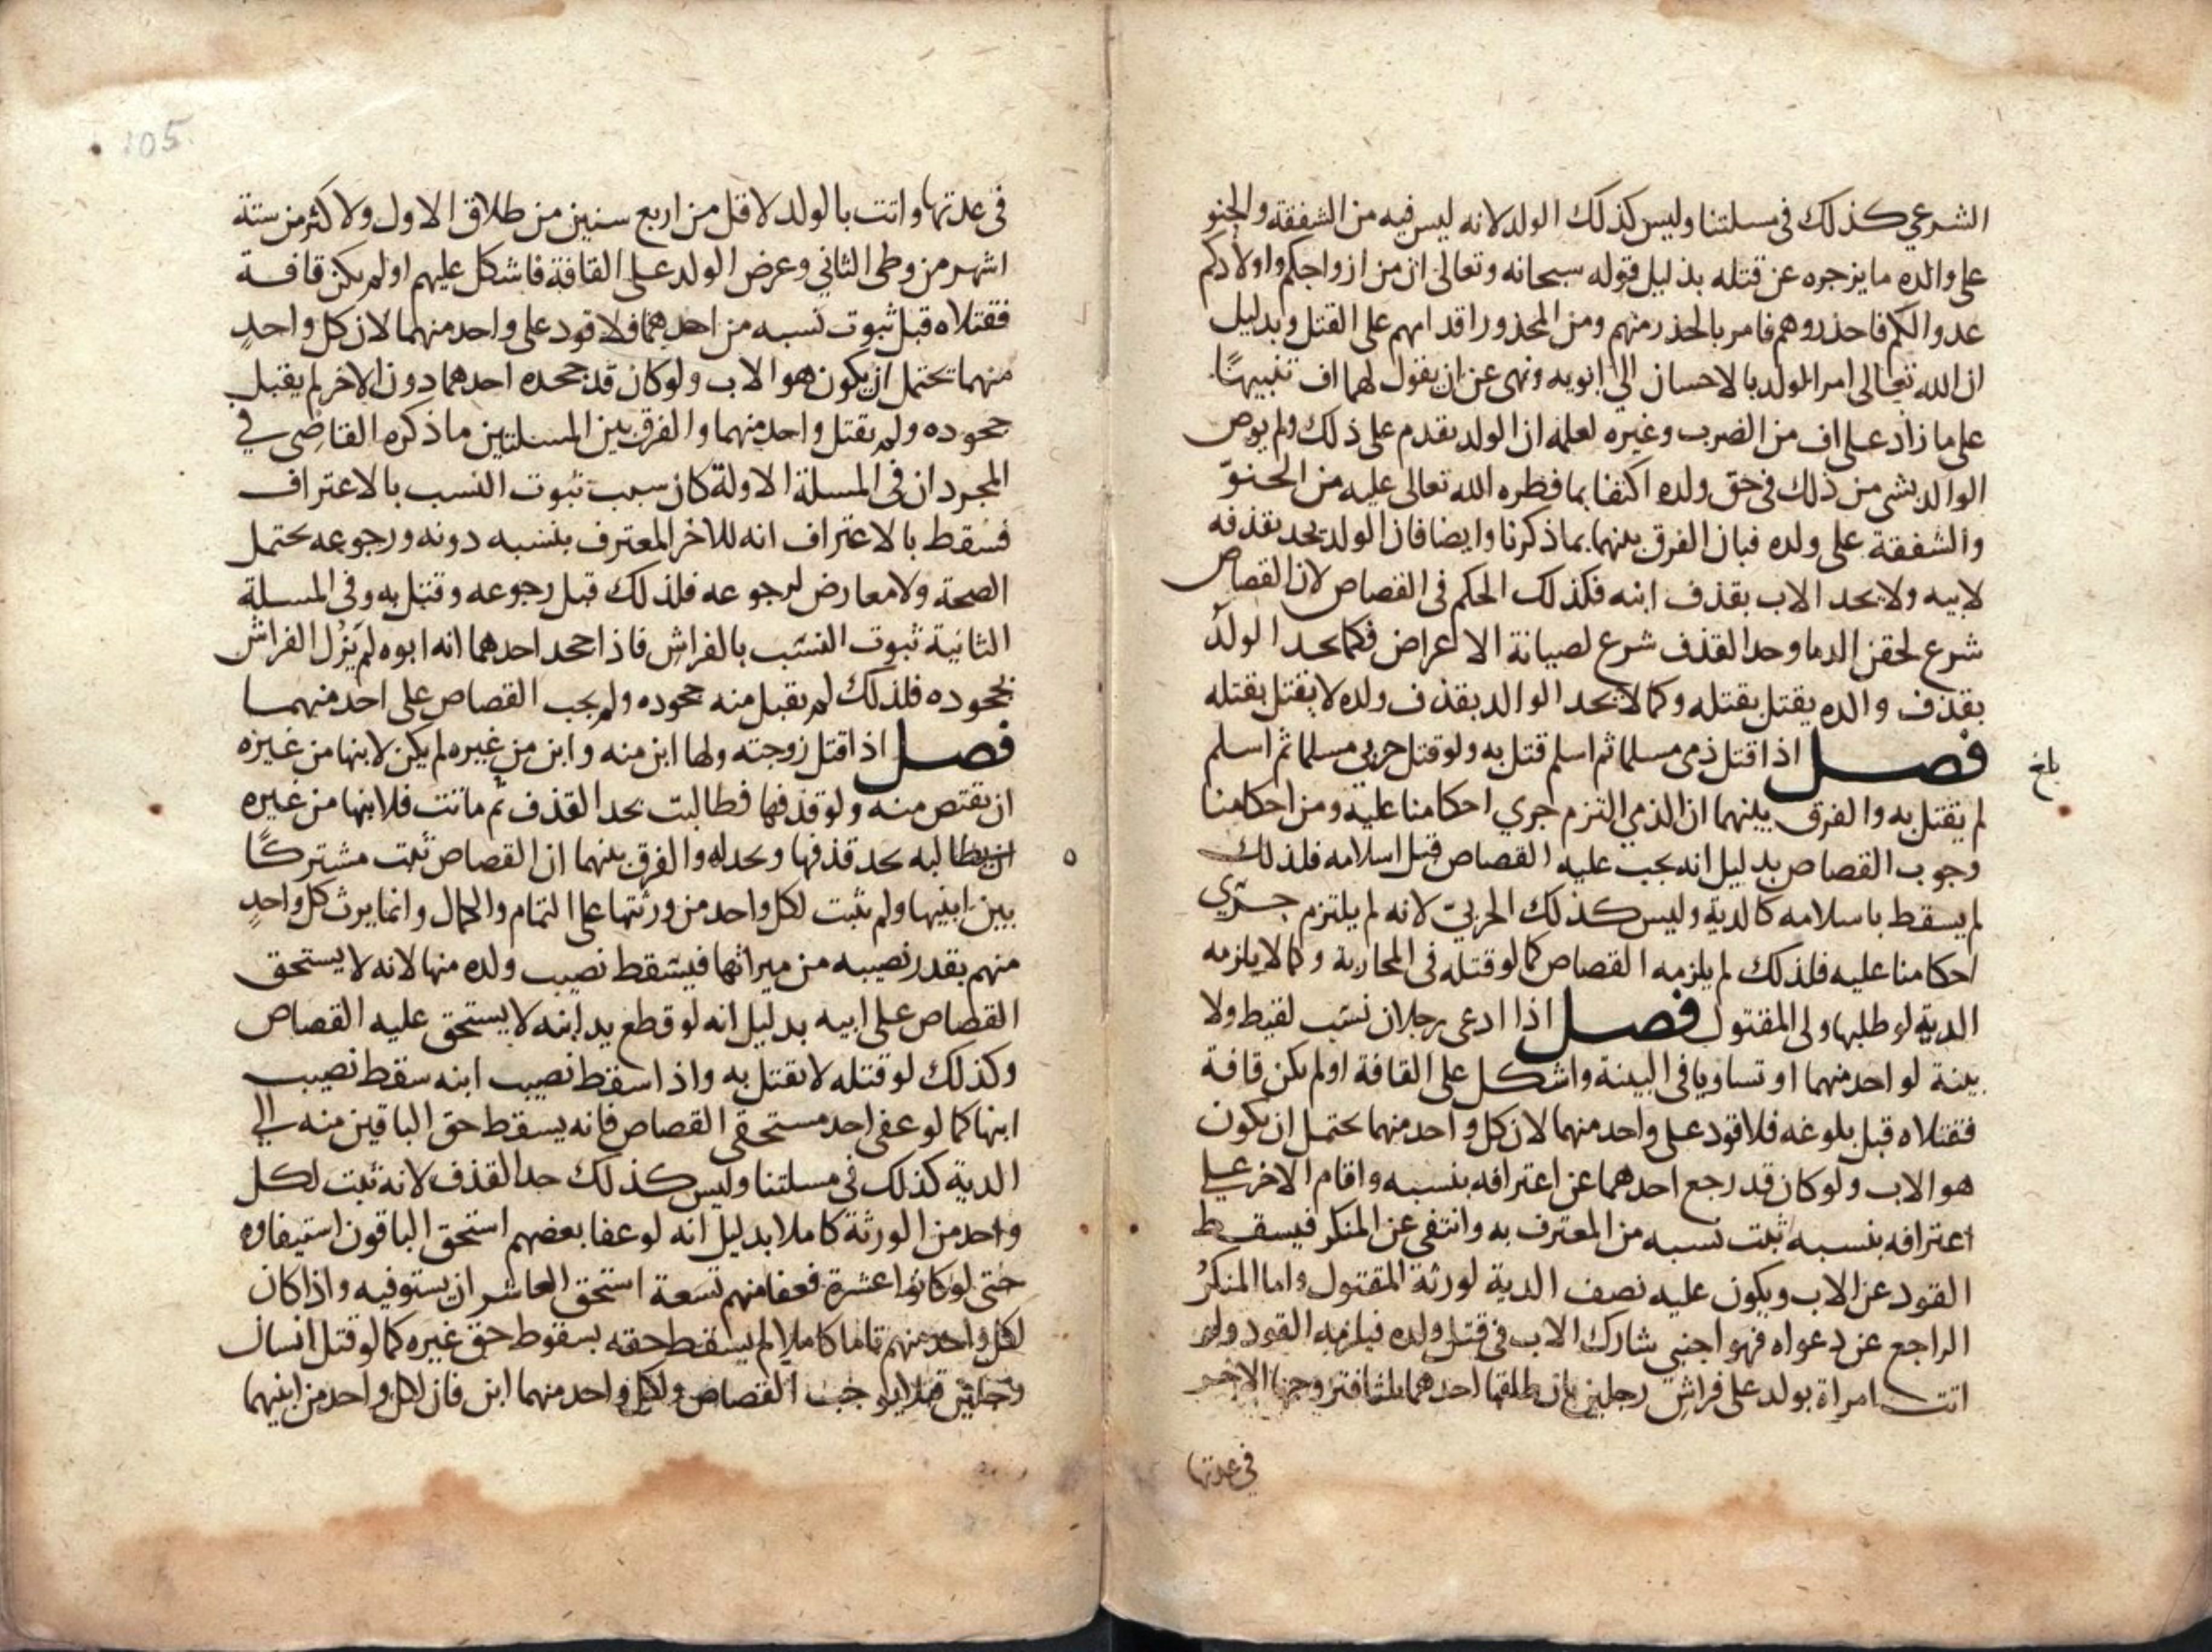 الشرعي كذلك في مسلتنا وليس كذلك الولد لانه ليس فيه من الشفقة والحنو
على والده ما يزجره عن قتله بدليل قوله سبحانه وتعالى ان من ازواجكم واولادكم
عدوا لكم فاحذروهم فامر بالحذر منهم ومن المحذور اقدامهم على القتل وبدليل
ان الله تعالى امر الولد بالاحسان الى ابويه ونهى عن ان يقول لهما اف تنبيهًا
على ما زاد على اف من الضرب وغيره لعلمه ان الولد يقدم على ذلك ولم يوص
الوالد بشي من ذلك في حق ولده اكتفا بما فطره الله تعالى عليه من الحنوّ
والشفقة على ولده فبان الفرق بينهما بما ذكرنا وايضا فان الولد يحد بقذفه
لابيه ولا يحد الاب بقذف ابنه فكذلك الحكم في القصاص لان القصاص
شرع لحقن الدما وحد القذف شرع لصيانة الاعراض فكما يحد الولد
بقذف والده يقتل بقتله وكما لا يحد الوالد بقذف ولده لا يقتل بقتله
فصل اذا قتل ذمي مسلما ثم اسلم قتل به ولو قتل حربي مسلما ثم اسلم
بلغ
لم يقتل به والفرق بينهما ان الذمي التزم جري احكامنا عليه ومن احكامنا
وجوب القصاص بدليل انه يجب عليه القصاص قبل اسلامه فلذلك
لم يسقط باسلامه كالدية وليس كذلك الحربي لانه لم يلتزم جري
احكامنا عليه فلذلك لم يلزمه القصاص كما لو قتله في المحاربة وكما لا يلزمه
الدية لو طلبها ولي المقتول فصل اذا ادعى رجلان نسب لقيط ولا
بينة لواحد منهما او تساويا في البينة واشكل على القافة او لم يكن قافة
فقتلاه قبل بلوغه فلا قود على واحد منهما لان كل واحد منهما يحتمل ان يكون
هو الاب ولو كان قد رجع احدهما عن اعترافه بنسبه واقام الاخر على
اعترافه بنسبه ثبت نسبه من المعترف به وانتفى عن المنكر فيسقط
القود عن الاب ويكون عليه نصف الدية لورثة المقتول واما المنكرُ
الراجع عن دعواه فهو اجنبي شارك الاب في قتل ولده فيلزمه القود ولو
اتت امراة بولد على فراش رجلين بان طلقها احدهما ثلثا فتزوجها الاخر
في عدتها
105
في عدتها واتت بالولد لاقل من اربع سنين من طلاق الاول ولاكثر من ستة
اشهر من وطى الثاني وعرض الولد على القافة فاشكل عليهم او لم يكن قافة
فقتلاه قبل ثبوت نسبه من احدهما فلا قود على واحد منهما لان كل واحدٍ
منهما يحتمل ان يكون هو الاب ولو كان قد جحده احدهما دون الاخر لم يقبل
جحوده ولم يقتل واحد منهما والفرق بين المسلتين ما ذكره القاضي في
المجرد ان في المسلة الاولة كان سبب ثبوت النسب بالاعتراف
فسقط بالاعتراف انه للاخر المعترف بنسبه دونه ورجوعه يحتمل
الصحة ولا معارض لرجوعه فلذلك قبل رجوعه وقتل به وفي المسلة
الثانية ثبوت النسب بالفراش فاذا جحد احدهما انه ابوه لم يزل الفراش
بجحوده فلذلك لم يقبل منه جحوده ولم يجب القصاص على احد منهما
فصل اذا قتل زوجته ولها ابن منه وابن من غيره لم يكن لابنها من غيره
ان يقتص منه ولو قذفها فطالبت بحد القذف ثم ماتت فلابنها من غيره
ان يطالبه بحد قذفها ويحد له والفرق بينهما ان القصاص ثبت مشتركًا
بين ابنيها ولم يثبت لكل واحد من ورثتها على التمام والكمال وانما يرث كل واحدٍ
منهم بقدر نصيبه من ميراثها فيسقط نصيب ولده منها لانه لا يستحق
القصاص على ابيه بدليل انه لو قطع يد ابنه لا يستحق عليه القصاص
وكذلك لو قتله لا يقتل به واذا سقط نصيب ابنه سقط نصيب
ابنها كما لو عفى احد مستحقي القصاص فانه يسقط حق الباقين منه الى
الدية كذلك في مسلتنا وليس كذلك حد القذف لانه ثبت لكل
واحد من الورثة كاملا بدليل انه لو عفا بعضهم استحق الباقون استيفاوه
حتى لو كانوا عشرة فعفا منهم تسعة استحق العاشر ان يستوفيه واذا كان
لكل واحد منهم تاما كاملا لم يسقط حقه بسقوط حق غيره كما لو قتل انسان
رجلين قتلا يوجب القصاص ولكل واحد منهما ابن فان لكل واحد من ابنيهما